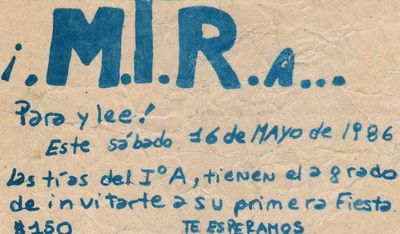 ¡.M.I.R.A...
Para y lee!
Este sábado, 16 de MAYO de 1986
Las tías del I°A, tienen el agrado
de invitarte a su primera Fiesta.
$150 TE ESPERAMOS